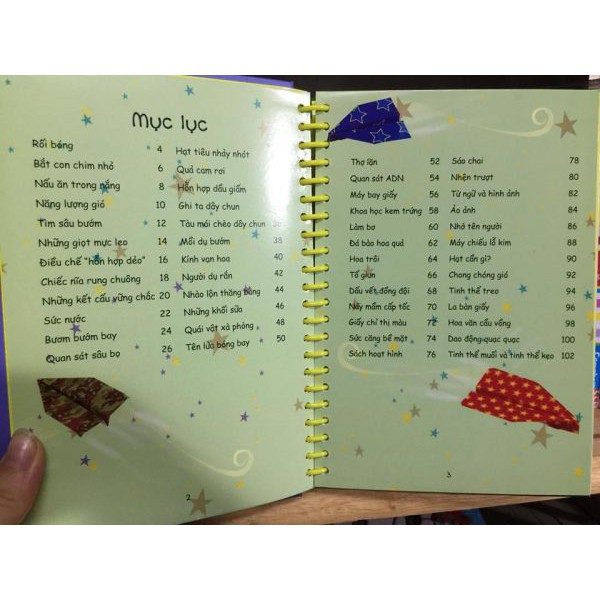 Mục lục
Rối bóng 4
Bắt con chim nhỏ 6
Nấu ăn trong nắng 8
Năng lượng gió 10
Tìm sâu bướm 12
Những giọt mực leo 14
Điều chế "hỗn hợp dẻo" 16
Chiếc nĩa rung chuông 18
Những kết cấu vững chắc 20
Sức nước 22
Bươm bướm bay 24
Quan sát sâu bọ 26
Hạt tiêu nhảy nhót
Quả cam rơi
Hỗn hợp dầu giấm
Ghi ta dây chun
Tàu mái chèo dây chun
Mồi dụ bướm 38
Kính vạn hoa 40
Người dụ rắn 42
Nhào lộn thăng bằng 44
Những khối sữa 46
Quái vật xà phòng 48
Tên lửa bóng bay 50
2
Thợ lặn 52
Quan sát ADN 54
Máy bay giấy 56
Khoa học kem trứng 58
Làm bơ 60
Đá bào hoa quả 62
Hoa trôi 64
Tổ giun 66
Dấu vết đồng đội 68
Nảy mầm cấp tốc 70
Giấy chỉ thị màu 72
Sức căng bề mặt 74
Sách hoạt hình 76
Sáo chai 78
Nhện trượt 80
Từ ngữ và hình ảnh 82
Ảo ảnh 84
Nhớ tên người 86
Máy chiếu lỗ kim 88
Hạt cần gì? 90
Chong chóng gió 92
Tinh thể treo 94
La bàn giấy 96
Hoa văn cầu vồng 98
Dao động quạc quạc 100
Tinh thể muối và tinh thể kẹo 102
3